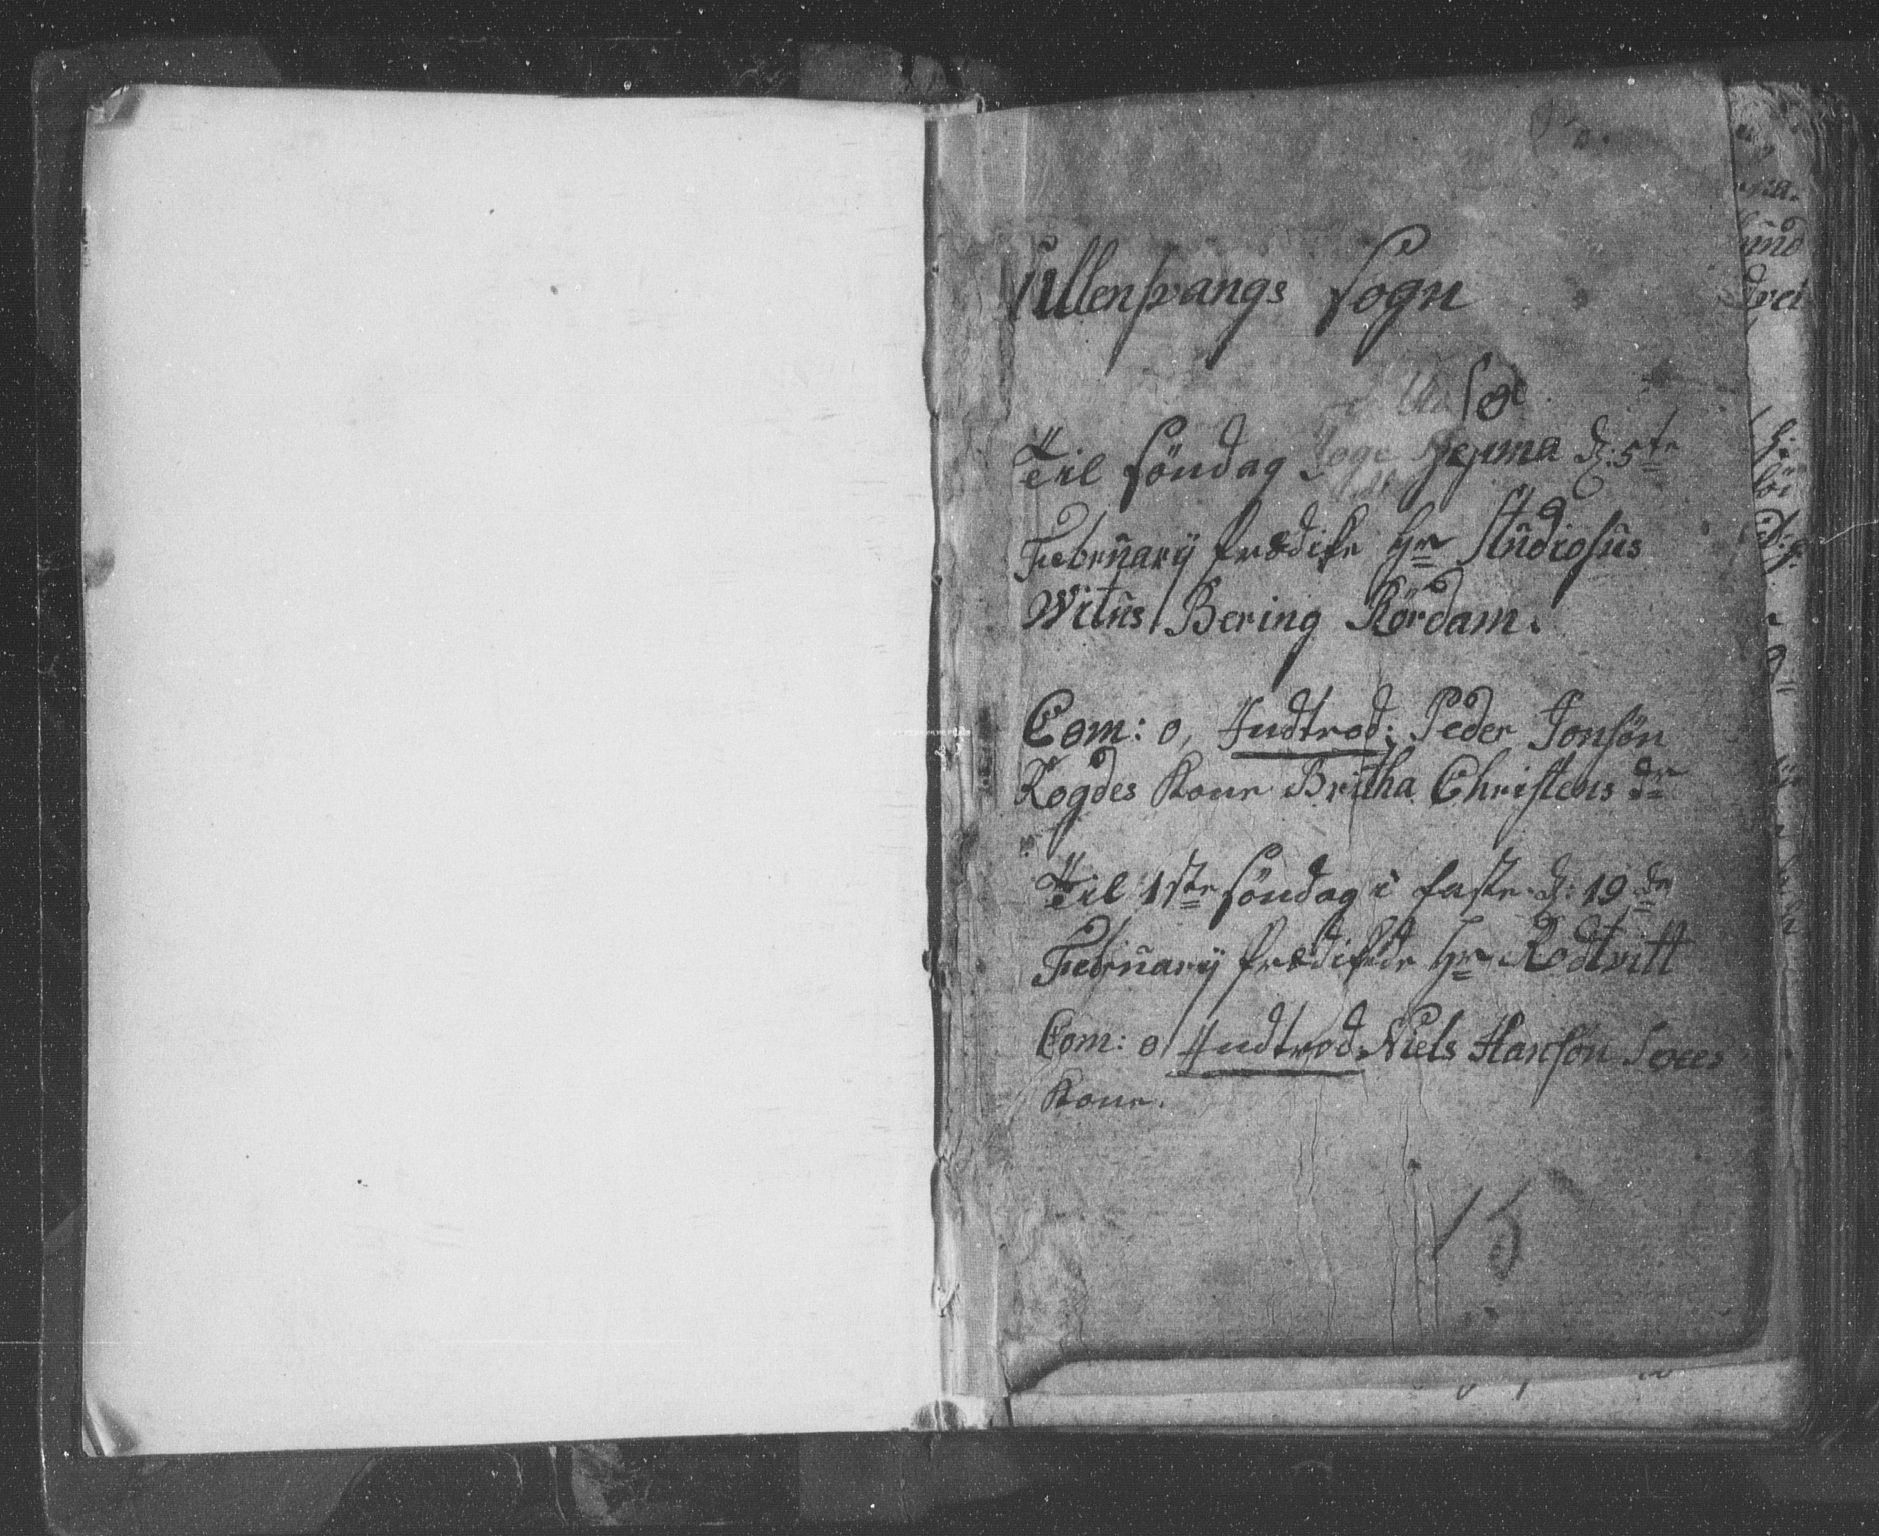 Ullensvangs Sogn
Til Söndag Sexagesima d: 5te
Februarÿ prædike Hr Studiosus
Witus Bering Rördam.
Com: 0, Indtrod: Peder Jonsön
Kogdes Kone Britha Christens dr
Til 1ste Söndag i faste d: 19de
Februarÿ prædikede Hr Rodtvitt
Com: 0 Indtrod: Niels Hansön
Kone.
15